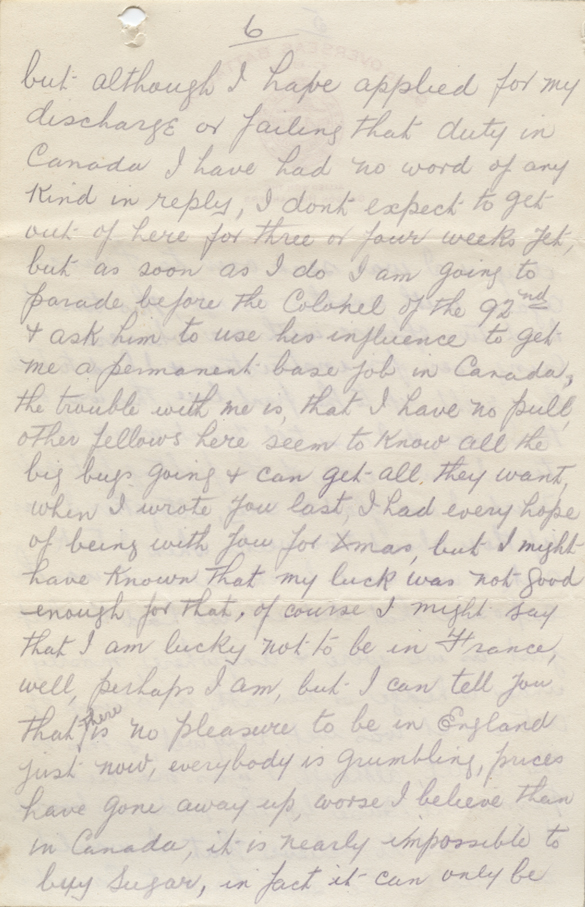 6
but although I hape applied for my
discharge or failing that duty in
Canada I have had no word of any
Kind in reply, I dont expect to get
out of here for three or four weeks yet,
but as soon as I do I am going to
parade before the Colonel of the 92nd
& ask him to use his influence to get
me a permanent base job in Canada,
the trouble with me is, that I have no pull,
other fellows here seem to know all the
big bugs going & can get all they want,
when I wrote you last, I had every hope
of being with you for Xmas, but I might
have known that my luck was not good
enough for that, of course I might say
that I am lucky not to be in France,
well, perhaps I am, but I can tell you
that there is no pleasure to be in England
just now, everybody is grumbling, prices
have gone away up, worse I believe than
in Canada, it is nearly impossible to
buy sugar, in fact it can only be